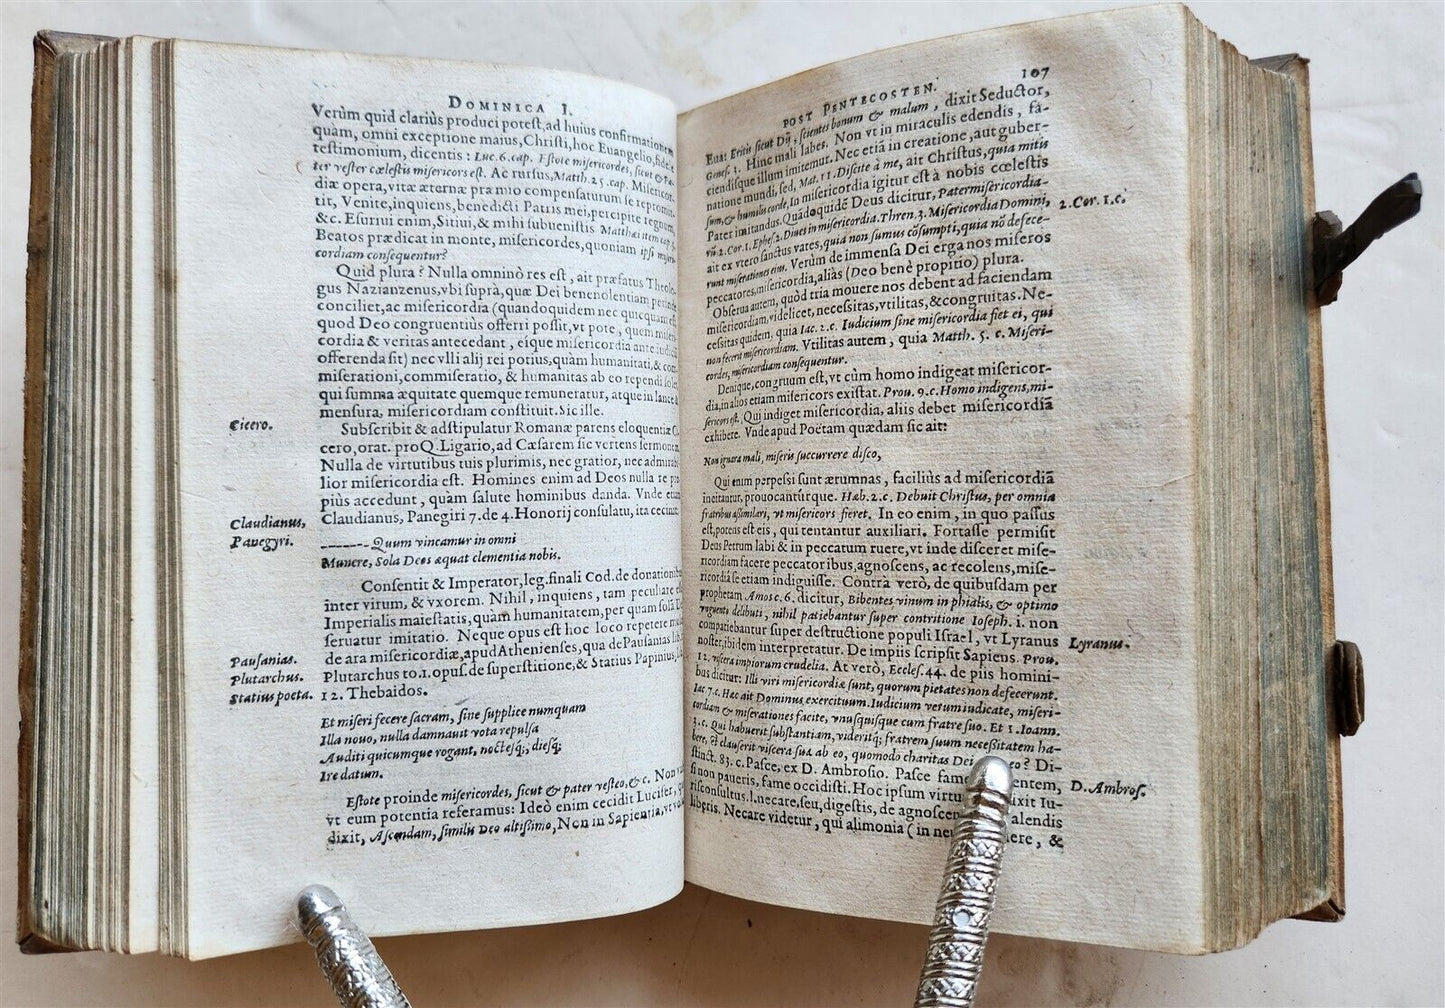 DOMINICA I.
Verùm quid clariùs produci potest, ad huius confirmationem
quàm, omni exceptione maius, Christi, hoc Euangelio, fidele
testimonium, dicentis: Luc. 6. cap. Estote misericordes, sicut & Pa-
ter vester cœlestis misericors est. Ac rursus, Matth. 25. cap. Misericor-
diæ opera, vitæ æternæ præmio compensaturum se repromit-
tit, Venite, inquiens, benedicti Patris mei, percipite regnum,
&c. Esuriui enim, Sitiui, & mihi subuenistis Matthæi item cap 5.
Beatos prædicat in monte, misericordes, quoniam ipsi miseri-
cordiam consequentur?
Quid plura? Nulla omninò res est, ait præfatus Theolo-
gus Nazianzenus, vbi suprà, quæ Dei beneuolentiam perinde
conciliet, ac misericordia (quandoquidem nec quicquam est
quod Deo congruentiùs offerri possit, vt pote, quem miseri-
cordia & veritas antecedant, eique misericordia ante iudiciũ
offerenda sit) nec vlli alij rei potius, quàm humanitati, & com
miserationi, commiseratio, & humanitas ab eo rependi solet
qui summa æquitate quemque remuneratur, atque in lance &
mensura, misericordiam constituit. Sic ille.
Cicero.
Subscribit & adstipulatur Romanæ parens eloquentiæ Ci
cero, orat. pro Q. Ligario, ad Cæsarem sic vertens sermonem
Nulla de virtutibus tuis plurimis, nec gratior, nec admirabi
lior misericordia est. Homines enim ad Deos nulla re pro
piùs accedunt, quàm salute hominibus danda. Vnde etiam
Claudianus,
Claudianus, Panegiri 7. de 4. Honorij consulatu, ita cecinit
Panegyri.
------- Quum vincamur in omni
Munere, Sola Deos æquat clementia nobis.
Consentit & Imperator, leg. finali Cod. de donationibus
inter virum, & vxorem. Nihil, inquiens, tam peculiare est
Imperialis maiestatis, quàm humanitatem, per quam solã D
seruatur imitatio. Neque opus est hoc loco repetere mul
Pausanias.
de ara misericordiæ, apud Athenienses, qua de Pausanias lib.
Plutarchus.
Plutarchus to. 1. opus. de superstitione, & Statius Papinius, l
Statius poeta.
12. Thebaidos.
Et miseri fecere sacram, sine supplice numquam
Illa nouo, nulla damnauit vota repulsa
Auditi quicumque rogant, noctesq;, diesq;
Ire datum.
Estote proinde misericordes, sicut & pater vester, &c. Non v
vt eum potentia referamus: Ideò enim cecidit Lucifer, qui
dixit, Ascendam, similis Deo altissimo, Non in Sapientia, vt vo
POST PENTECOSTEN. 107
Euæ: Eritis sicut Dij, scientes bonum & malum, dixit Seductor,
Genes. 3. Hinc mali labes. Non vt in miraculis edendis, fa-
ciendisque illum imitemur. Nec etiã in creatione, aut guber-
natione mundi, sed, Mat. 11. Discite à me, ait Christus, quia mitis
sum, & humilis corde, In misericordia igitur est à nobis cœlestis
Pater imitandus. Quãdoquidẽ Deus dicitur, Pater misericordia-
2. Cor. 1. c.
rũ 2. Cor. 1. Ephes. 2. Diues in misericordia. Thren. 3. Misericordia Domini,
ait ex vtero sanctus vates, quia non sumus cõsumpti, quia nõ defece-
runt miserationes eius. Verùm de immensa Dei erga nos miseros
peccatores, misericordia, aliàs (Deo benè propitio) plura.
Obserua autem, quòd tria mouere nos debent ad faciendam
misericordiam, videlicet, necessitas, vtilitas, & congruitas. Ne-
cessitas quidem, quia Iac. 2. c. Iudicium sine misericordia fiet ei, qui
non fecerit misericordiam. Vtilitas autem, quia Matth. 5. c. Miseri-
cordes, misericordiam consequentur.
Denique, congruum est, vt cùm homo indigeat misericor-
dia, in alios etiam misericors existat. Prou. 9. c. Homo indigens, mi-
sericors est. Qui indiget misericordia, aliis debet misericordiã
exhibere. Vnde apud Poëtam quædam sic ait:
Non ignara mali, miseris succurrere disco,
Qui enim perpessi sunt ærumnas, faciliùs ad misericordiã
incitantur, prouocanturque. Hæb. 2. c. Debuit Christus, per omnia
fratribus assimilari, vt misericors fieret. In eo enim, in quo passus
est, potens est eis, qui tentantur auxiliari. Fortasse permisit
Deus Petrum labi & in peccatum ruere, vt inde disceret mise-
ricordiam facere peccatoribus, agnoscens, ac recolens, mise-
ricordia se etiam indiguisse. Contrà verò, de quibusdam per
prophetam Amos c. 6. dicitur, Bibentes vinum in phialis, & optimo
vnguento delibuti, nihil patiebantur super contritione Ioseph. i. non
compatiebantur super destructione populi Israel, vt Lyranus
Lyranus.
noster, ibidem interpretatur. De impiis scripsit Sapiens. Prou.
12. viscera impiorum crudelia. At verò, Eccles. 44. de piis homini-
bus dicitur: Illi viri misericordiæ sunt, quorum pietates non defecerunt.
Iac 7. c. Hæc ait Dominus exercituum. Iudicium verum iudicate, miseri-
cordiam & miserationes facite, vnusquisque cum fratre suo. Et 1. Ioann.
3. c. Qui habuerit substantiam, videritq; fratrem suum necessitatem ha-
bere, & clauserit viscera sua ab eo, quomodo charitas Dei eo? Di-
stinct. 83. c. Pasce, ex D. Ambrosio. Pasce fame entem,
D. Ambros.
si non paueris, fame occidisti. Hoc ipsum virtu dixit Iu-
risconsultus. l. necare, seu, digestis, de agnoscen alendis
liberis. Necare videtur, qui alimonia (in neu ere, &